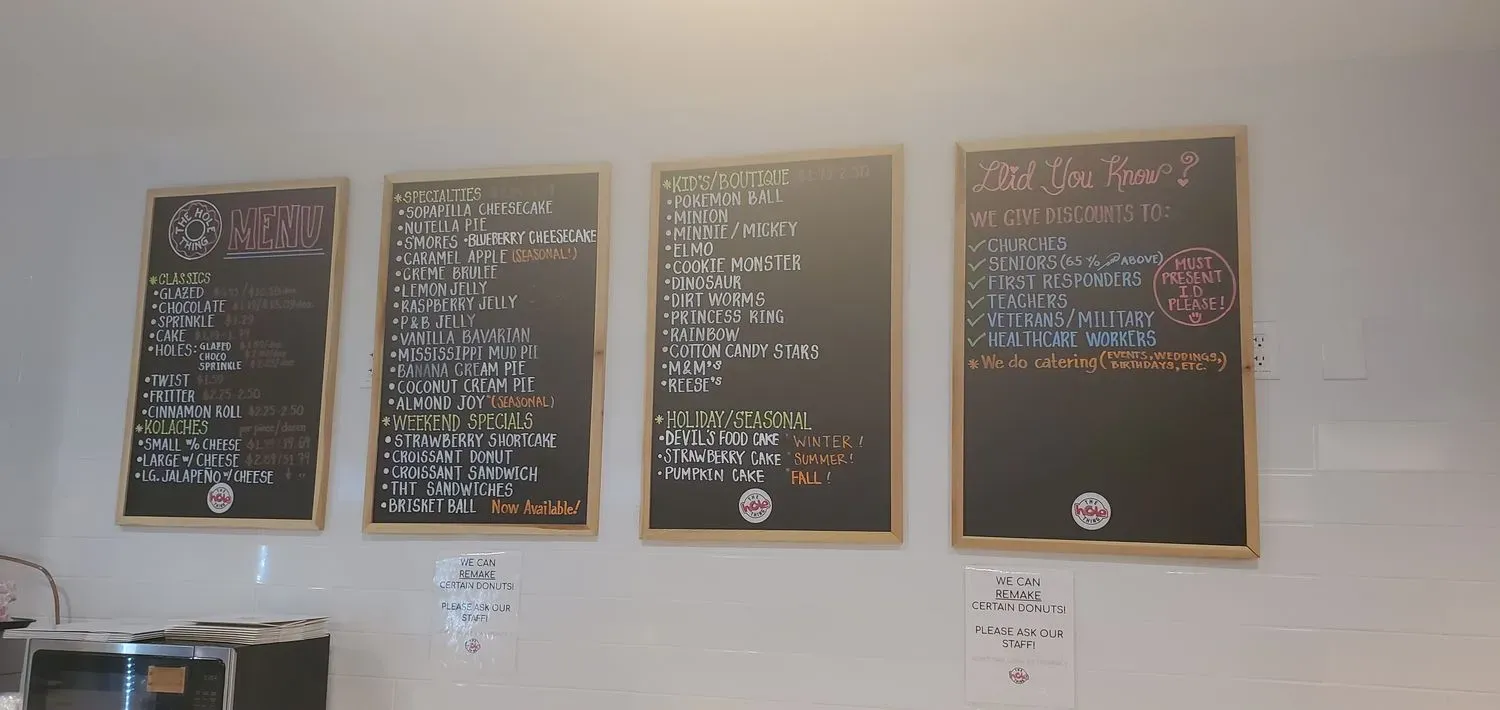 THE HOLE THING
MENU
*CLASSICS
•GLAZED
•CHOCOLATE
•SPRINKLE $1.29
•CAKE
•HOLES: GLAZED
CHOCO
SPRINKLE
•TWIST $1.50
•FRITTER $2.25-2.50
•CINNAMON ROLL $2.25-2.50
*KOLACHES per piece/dozen
•SMALL W/O CHEESE
•LARGE W/ CHEESE
•LG. JALAPEÑO W/ CHEESE
THE hole THING
*SPECIALTIES
•SOPAPILLA CHEESECAKE
•NUTELLA PIE
•S'MORES •BLUEBERRY CHEESECAKE
•CARAMEL APPLE (SEASONAL!)
•CREME BRULEE
•LEMON JELLY
•RASPBERRY JELLY
•P&B JELLY
•VANILLA BAVARIAN
•MISSISSIPPI MUD PIE
•BANANA CREAM PIE
•COCONUT CREAM PIE
•ALMOND JOY *(SEASONAL)
*WEEKEND SPECIALS
•STRAWBERRY SHORTCAKE
•CROISSANT DONUT
•CROISSANT SANDWICH
•THT SANDWICHES
•BRISKET BALL Now Available!
*KID'S/BOUTIQUE
•POKEMON BALL
•MINION
•MINNIE/MICKEY
•ELMO
•COOKIE MONSTER
•DINOSAUR
•DIRT WORMS
•PRINCESS RING
•RAINBOW
•COTTON CANDY STARS
•M&M'S
•REESE'S
*HOLIDAY/SEASONAL
•DEVIL'S FOOD CAKE *WINTER!
•STRAWBERRY CAKE *SUMMER!
•PUMPKIN CAKE *FALL!
THE hole THING
Did You Know?
WE GIVE DISCOUNTS TO:
✓CHURCHES
✓SENIORS (65 Y/o and ABOVE)
✓FIRST RESPONDERS
✓TEACHERS
✓VETERANS/MILITARY
✓HEALTHCARE WORKERS
MUST
PRESENT
I.D
PLEASE!
*We do catering (EVENTS, WEDDINGS,
BIRTHDAYS, ETC.)
THE hole THING
WE CAN
REMAKE
CERTAIN DONUTS!
PLEASE ASK OUR
STAFF!
WE CAN
REMAKE
CERTAIN DONUTS!
PLEASE ASK OUR
STAFF!